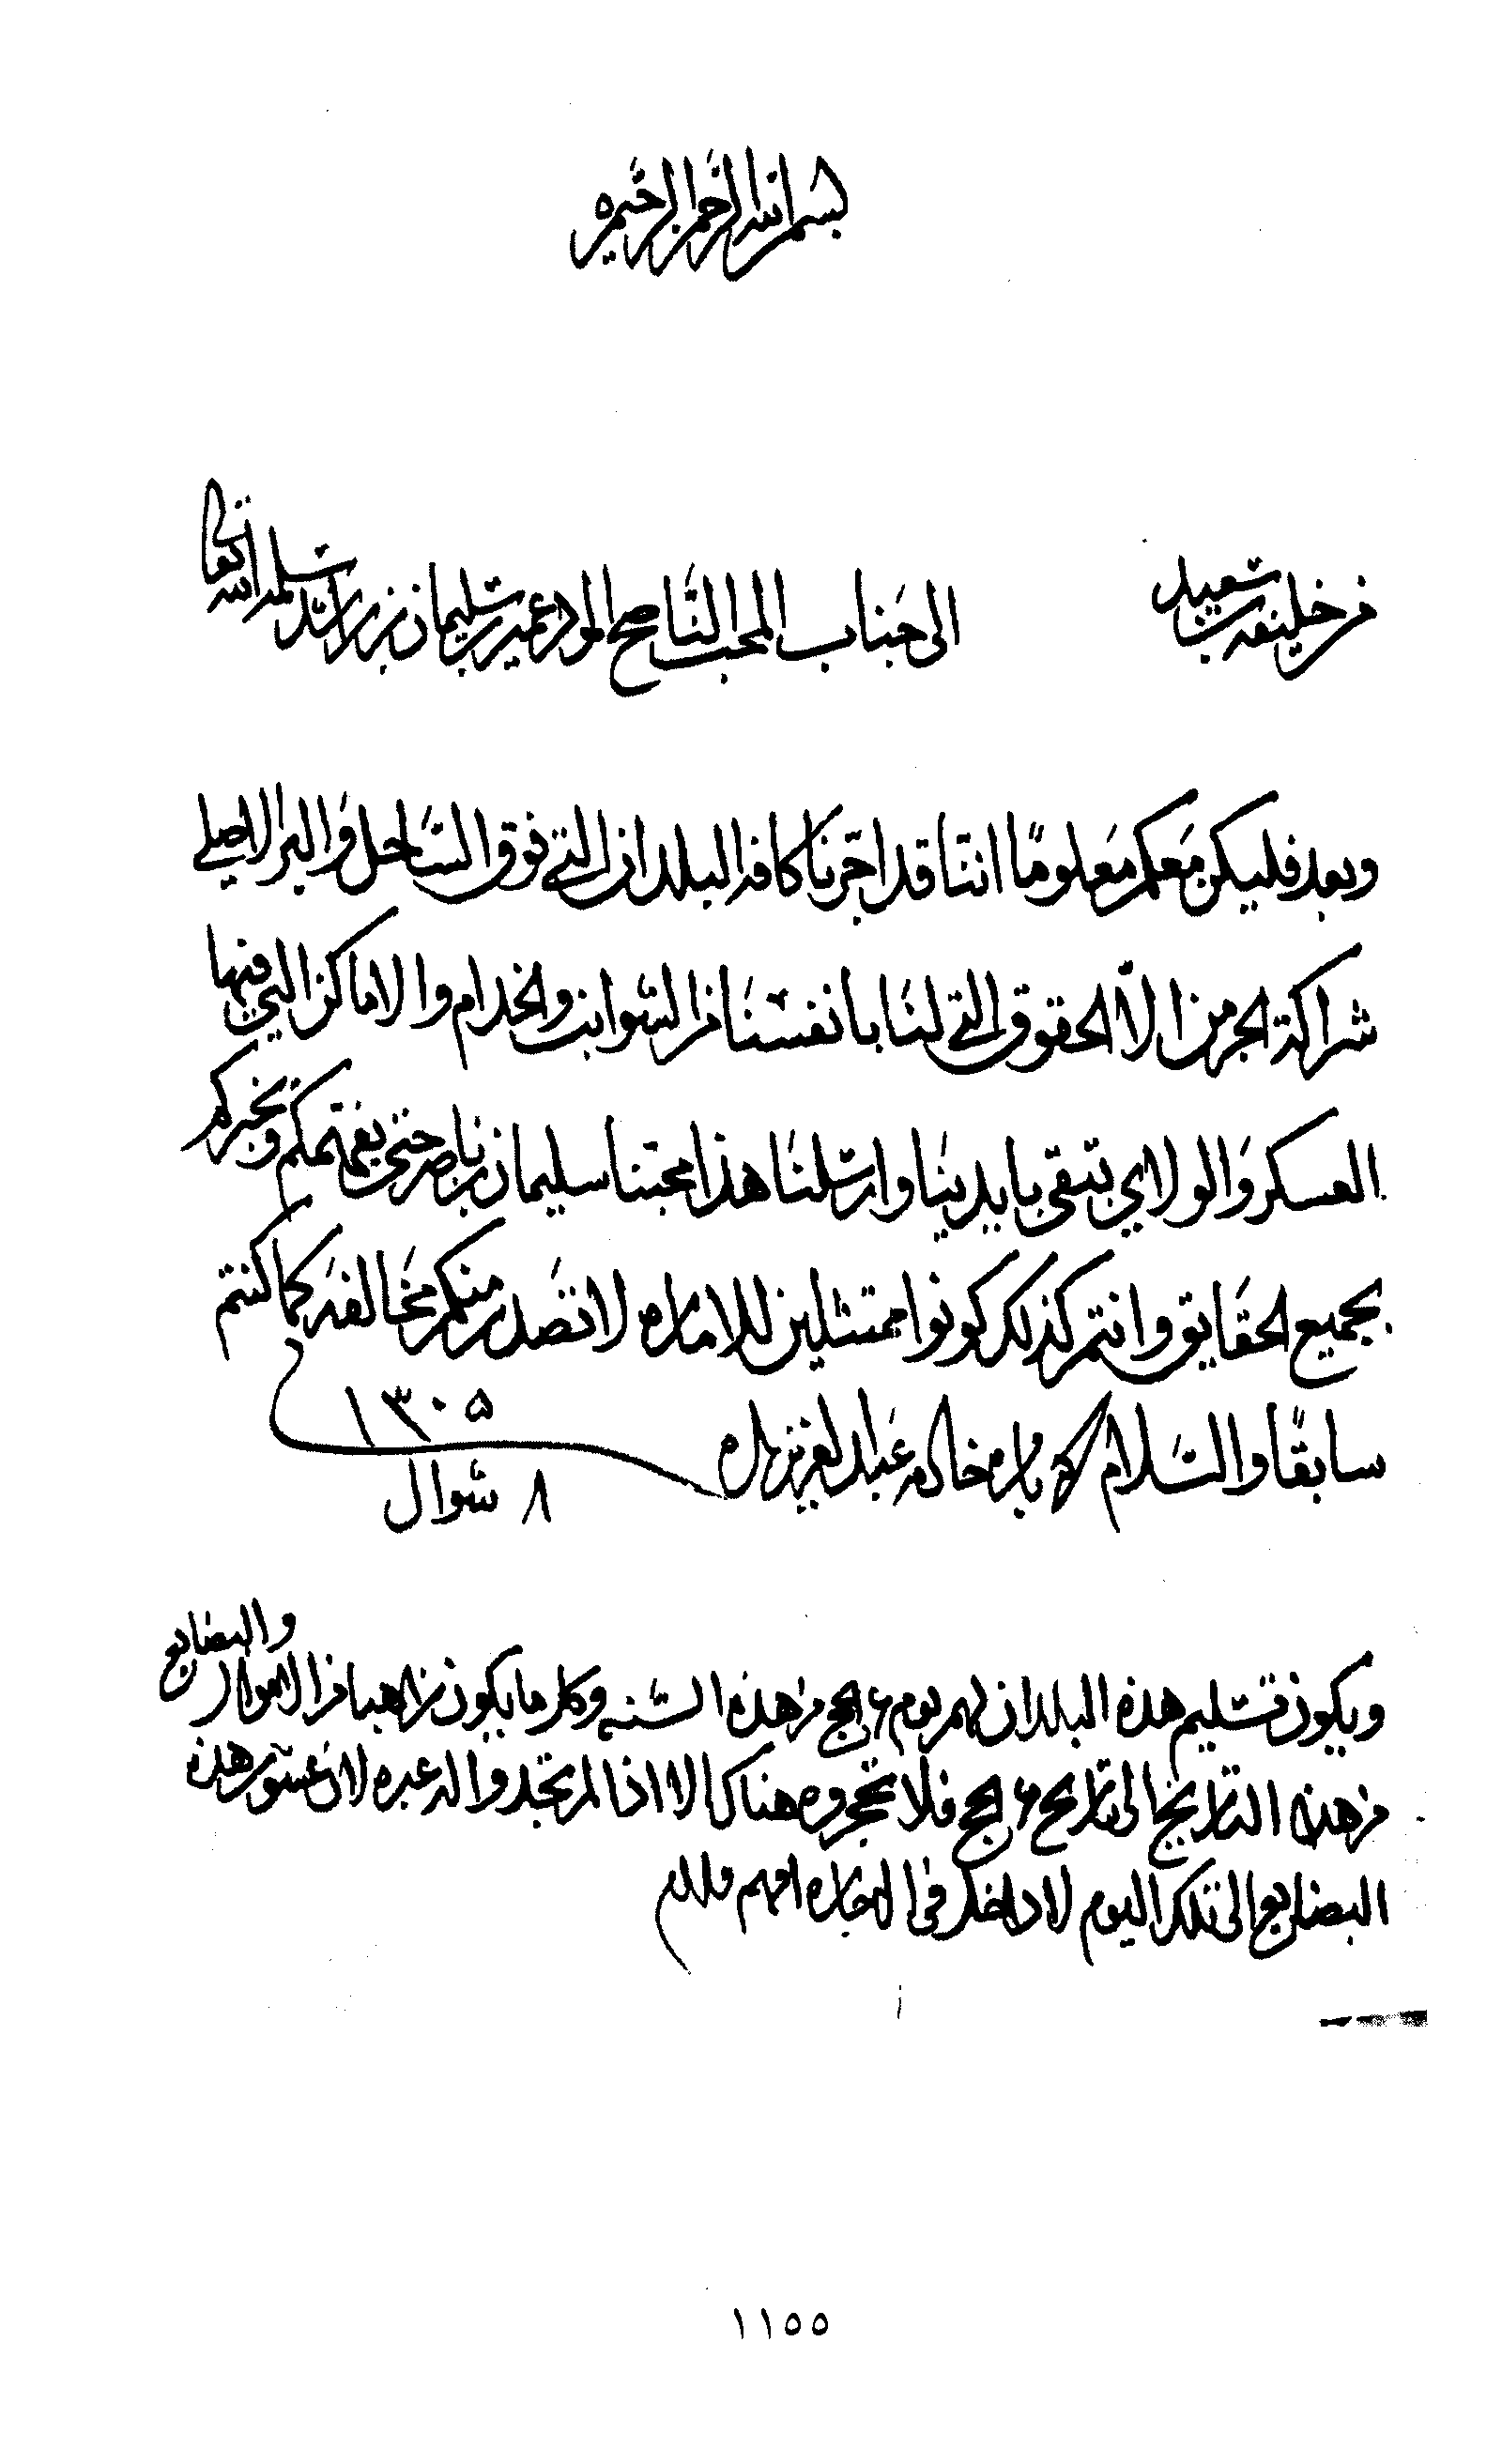 بسم الله الرحمن الرحيم
من خليفه بن سعيد
الى جناب المحب الناصح الوالد عمير سليمان بن راشد سلمه الله تعالى
وبعد فليكن معكم معلومًا اننا قد اجّرنا كافه البلدان التي فوق الساحل والبر الاصلي
شراكة الجرمن الّا الحقوق التي لنا بانفسنا من الشوانب والخدام والاماكن التي فيها
العسكر والولاي بتبقى بايدينا وارسلنا هذا محبنا سليمان بن ناصر حتى يفهمكم ويخبركم
بجميع الحقايق وانتم كذلك كونوا ممتثلين للاماره لا تصدر منكم مخالفه كما كنتم
سابقًا والسلام خادمه عبدالعزيز
١٣٠٥
٨ شوال
والبضايع
ويكون تسليم هذه البلدان لهم يوم ٦ الحج من هذه السنه وكلما يكون ذاهبا من الاموال
من هذه التاريخ الى تاريخ ٦ الحج فلا تحجروه هناك الا اذا لم تجدوا له عبره لان عشور هذه
البضايع الى تلك اليوم لا داخل في الاجاره افهم والسلام
١١٥٥